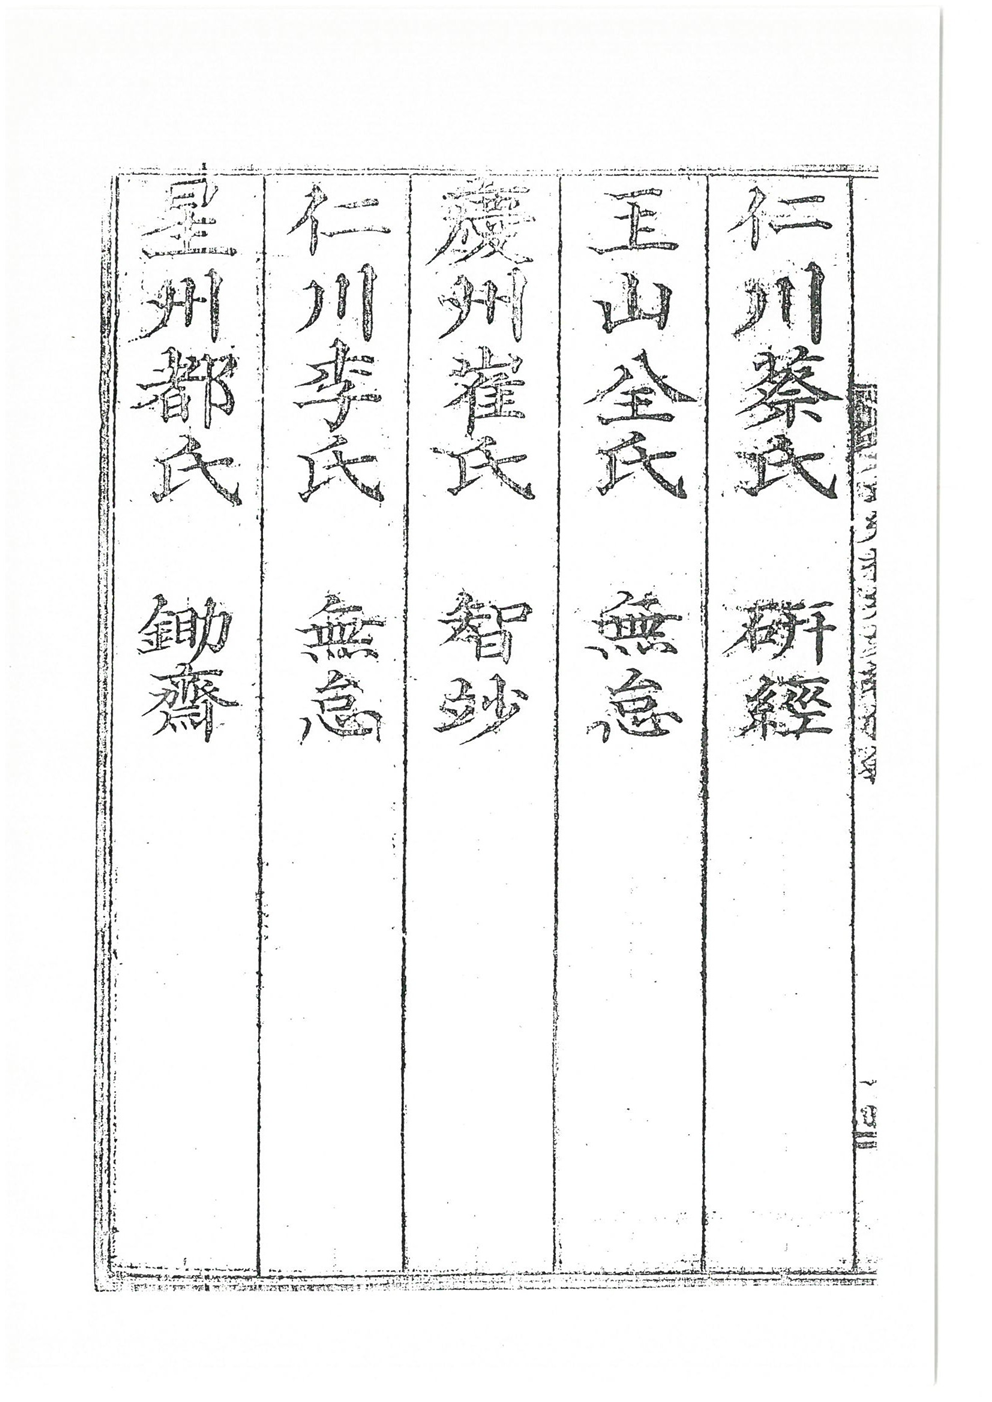 仁川蔡氏 硏經
玉山全氏 無怠
慶州崔氏 智妙
仁川李氏 無怠
星州都氏 鋤齋